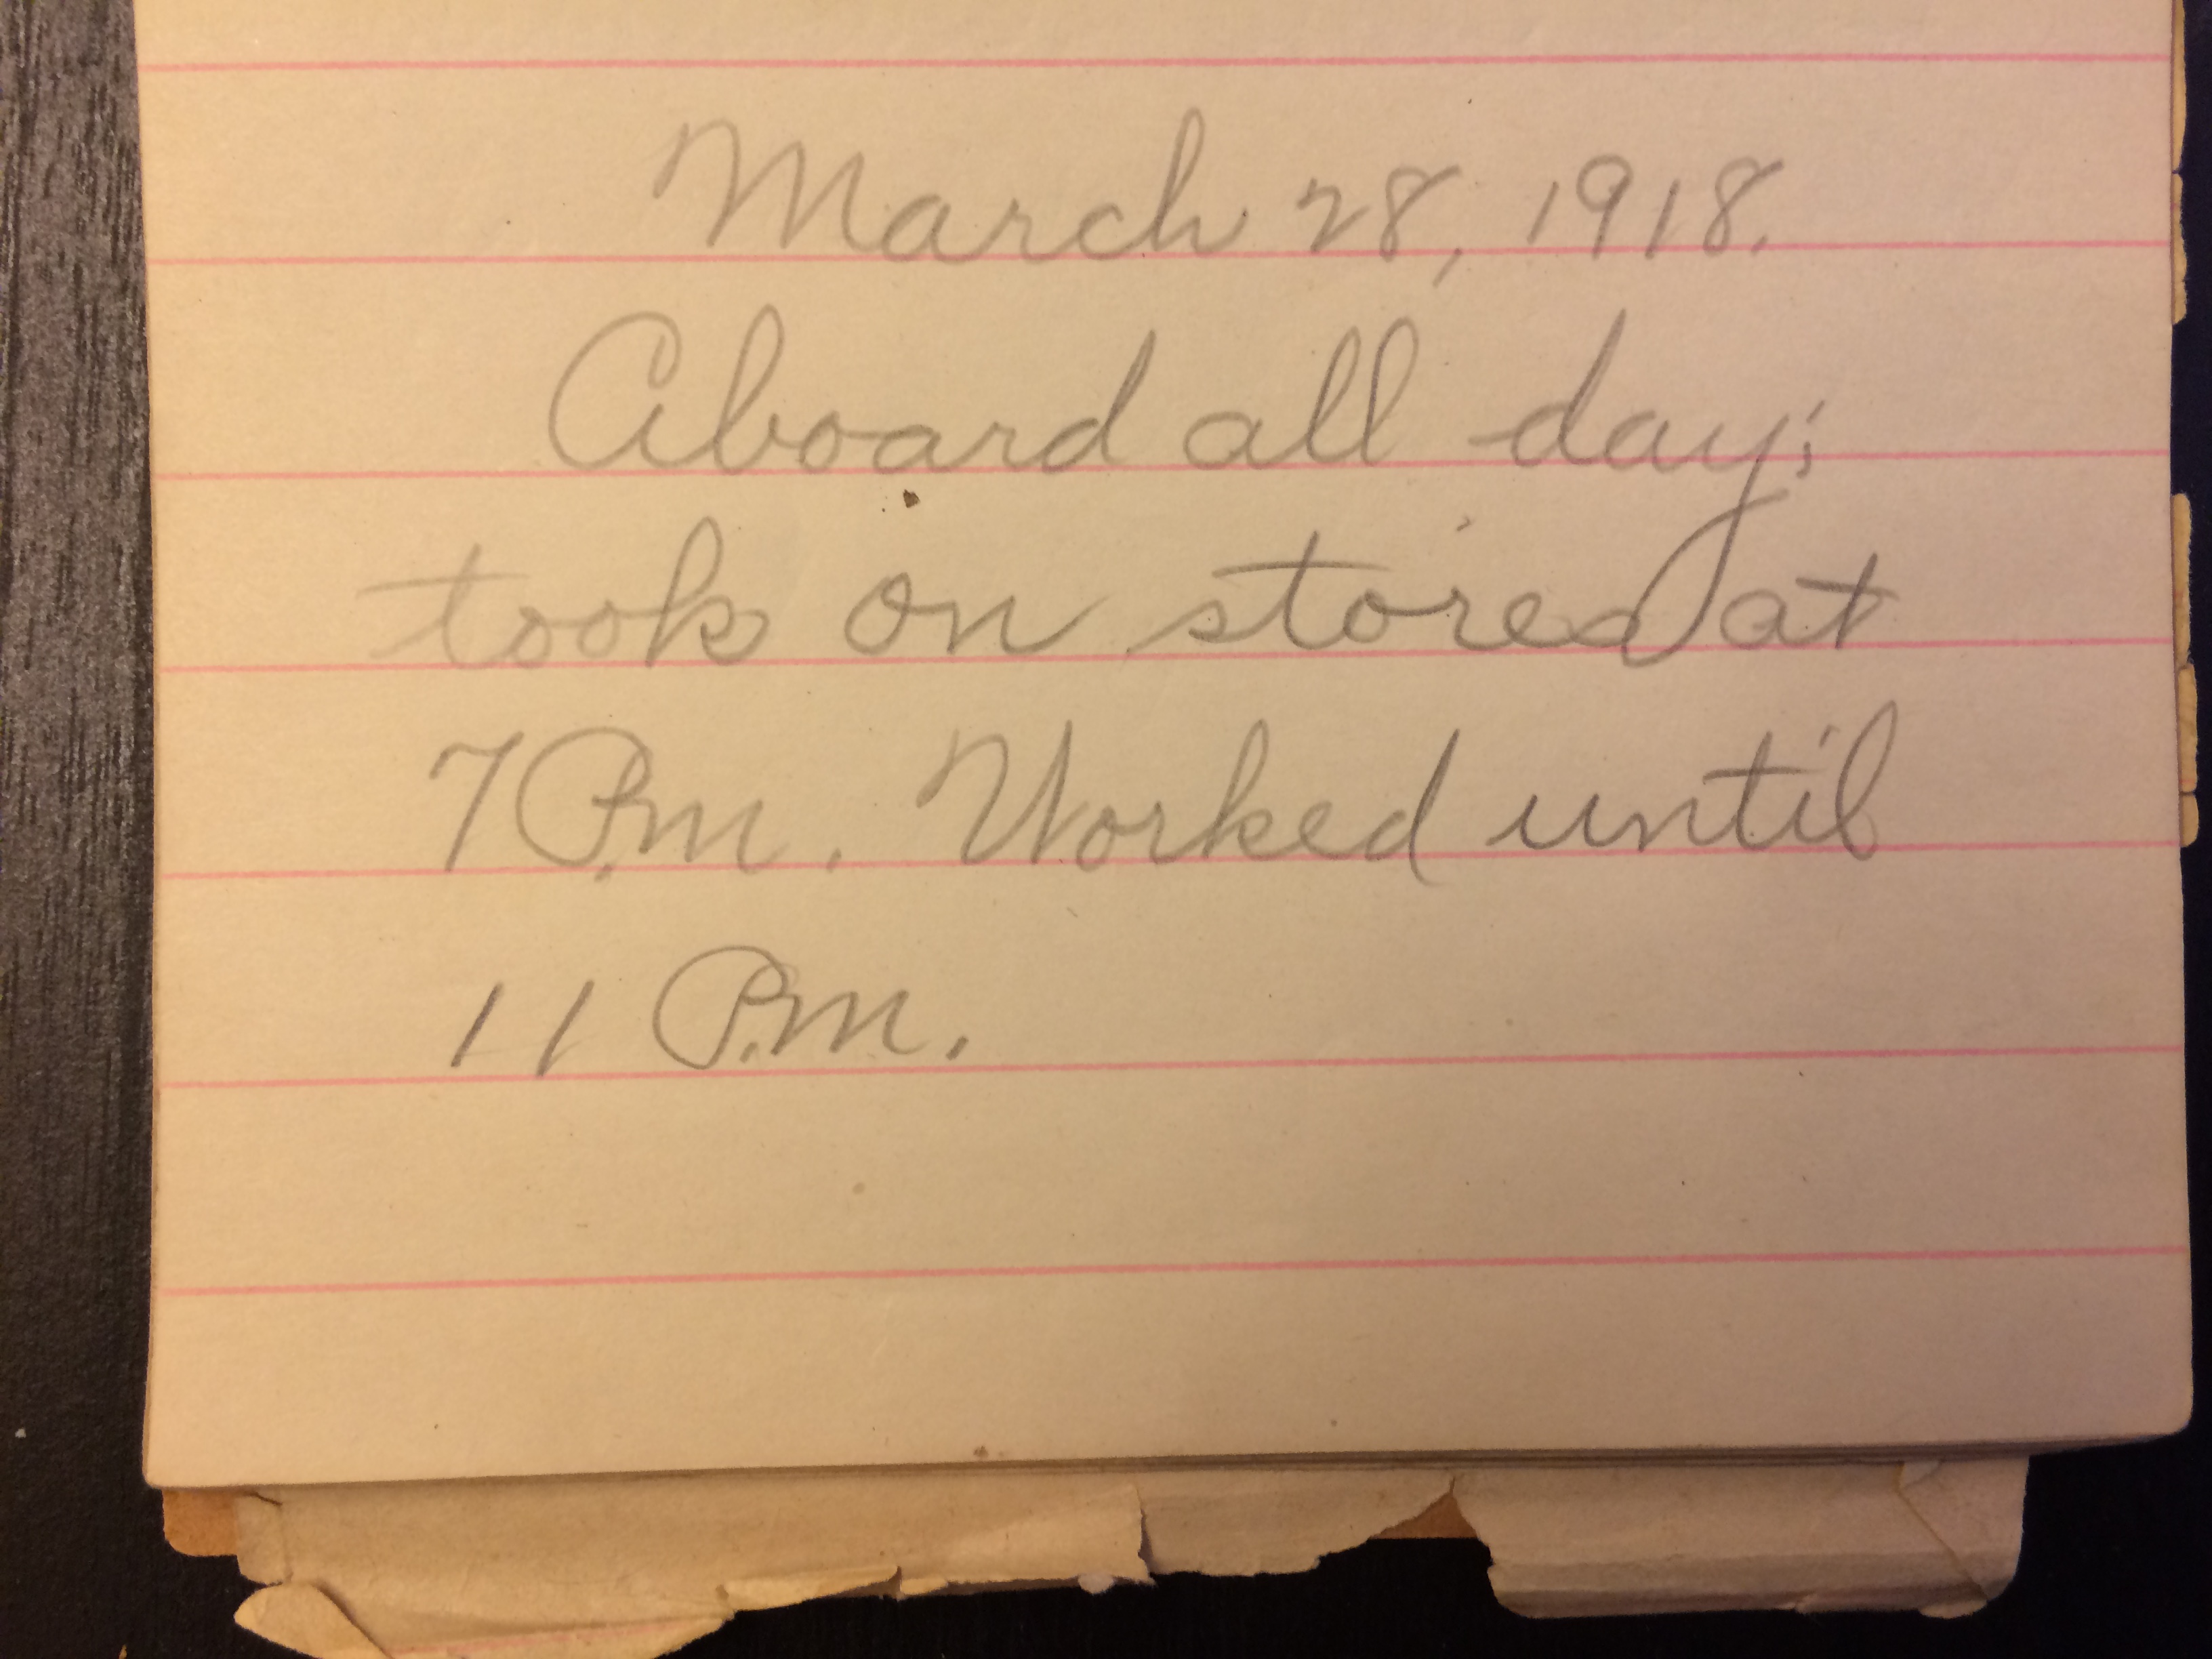 March 28, 1918.
Aboard all day;
took on stores at
7 P.m. Worked until
11 P.m.